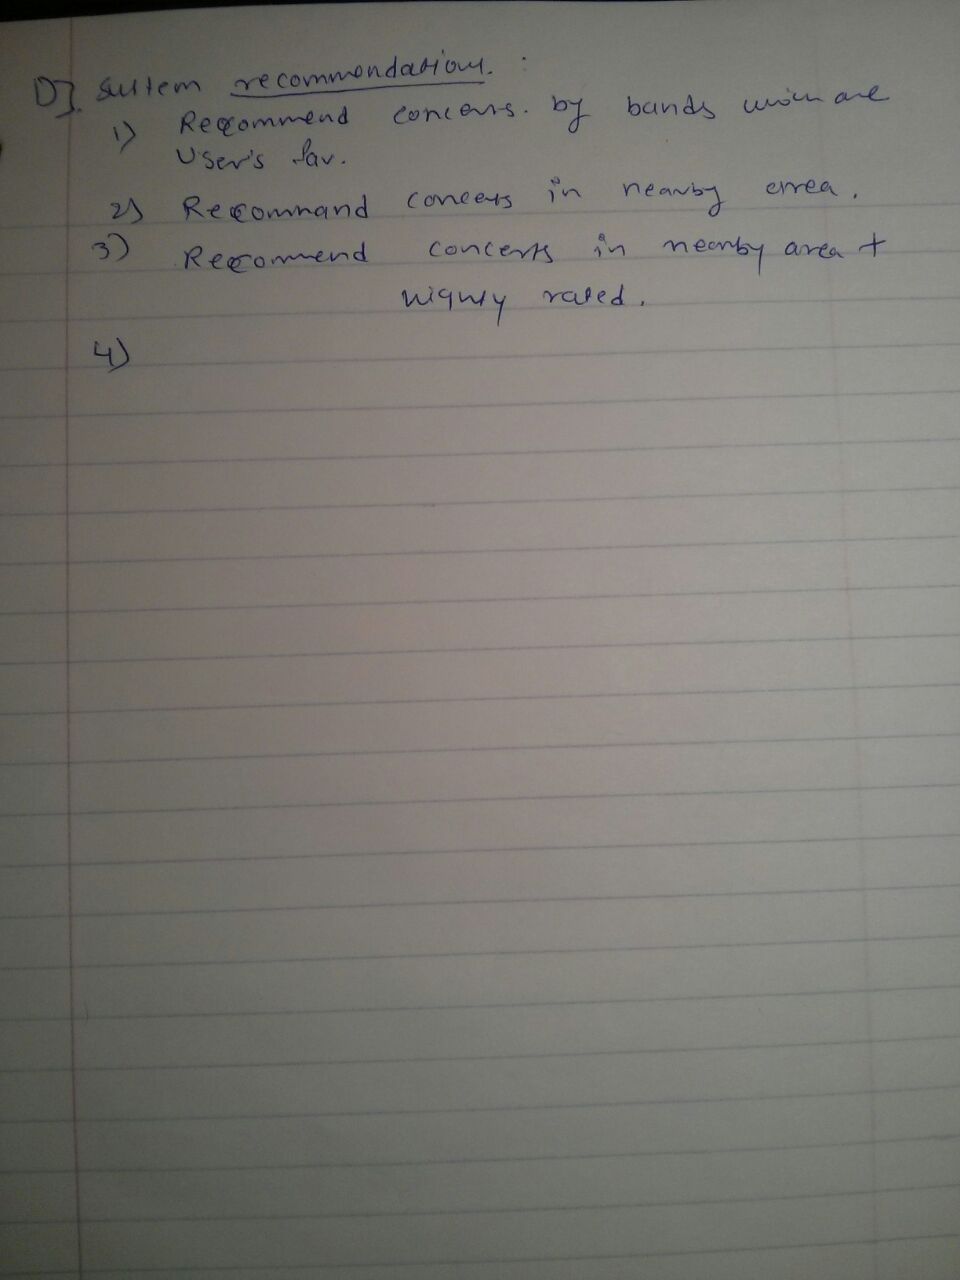 D]. System recommendations. :
1) Recommend concerts. by bands which are
User's fav.
2) Recommand concerts in nearby area.
3) Recommend concerts in nearby area +
highly rated.
4)